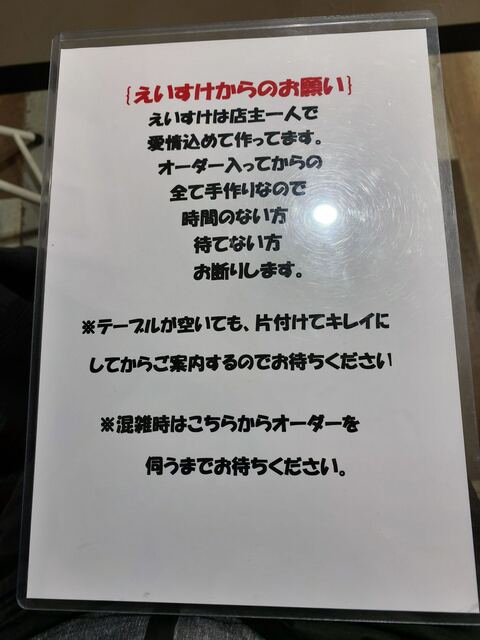 {えいすけからのお願い}
えいすけは店主一人で
愛情込めて作ってます。
オーダー入ってからの
全て手作りなので
時間のない方
待てない方
お断りします。
※テーブルが空いても、片付けてキレイに
してからご案内するのでお待ちください
※混雑時はこちらからオーダーを
伺うまでお待ちください。